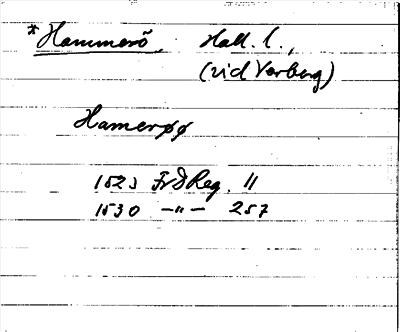 *Hammerö, Hall. l.,
(vid Varberg)
Hamerøø
1523 FrdReg. 11
1530 -"- 257